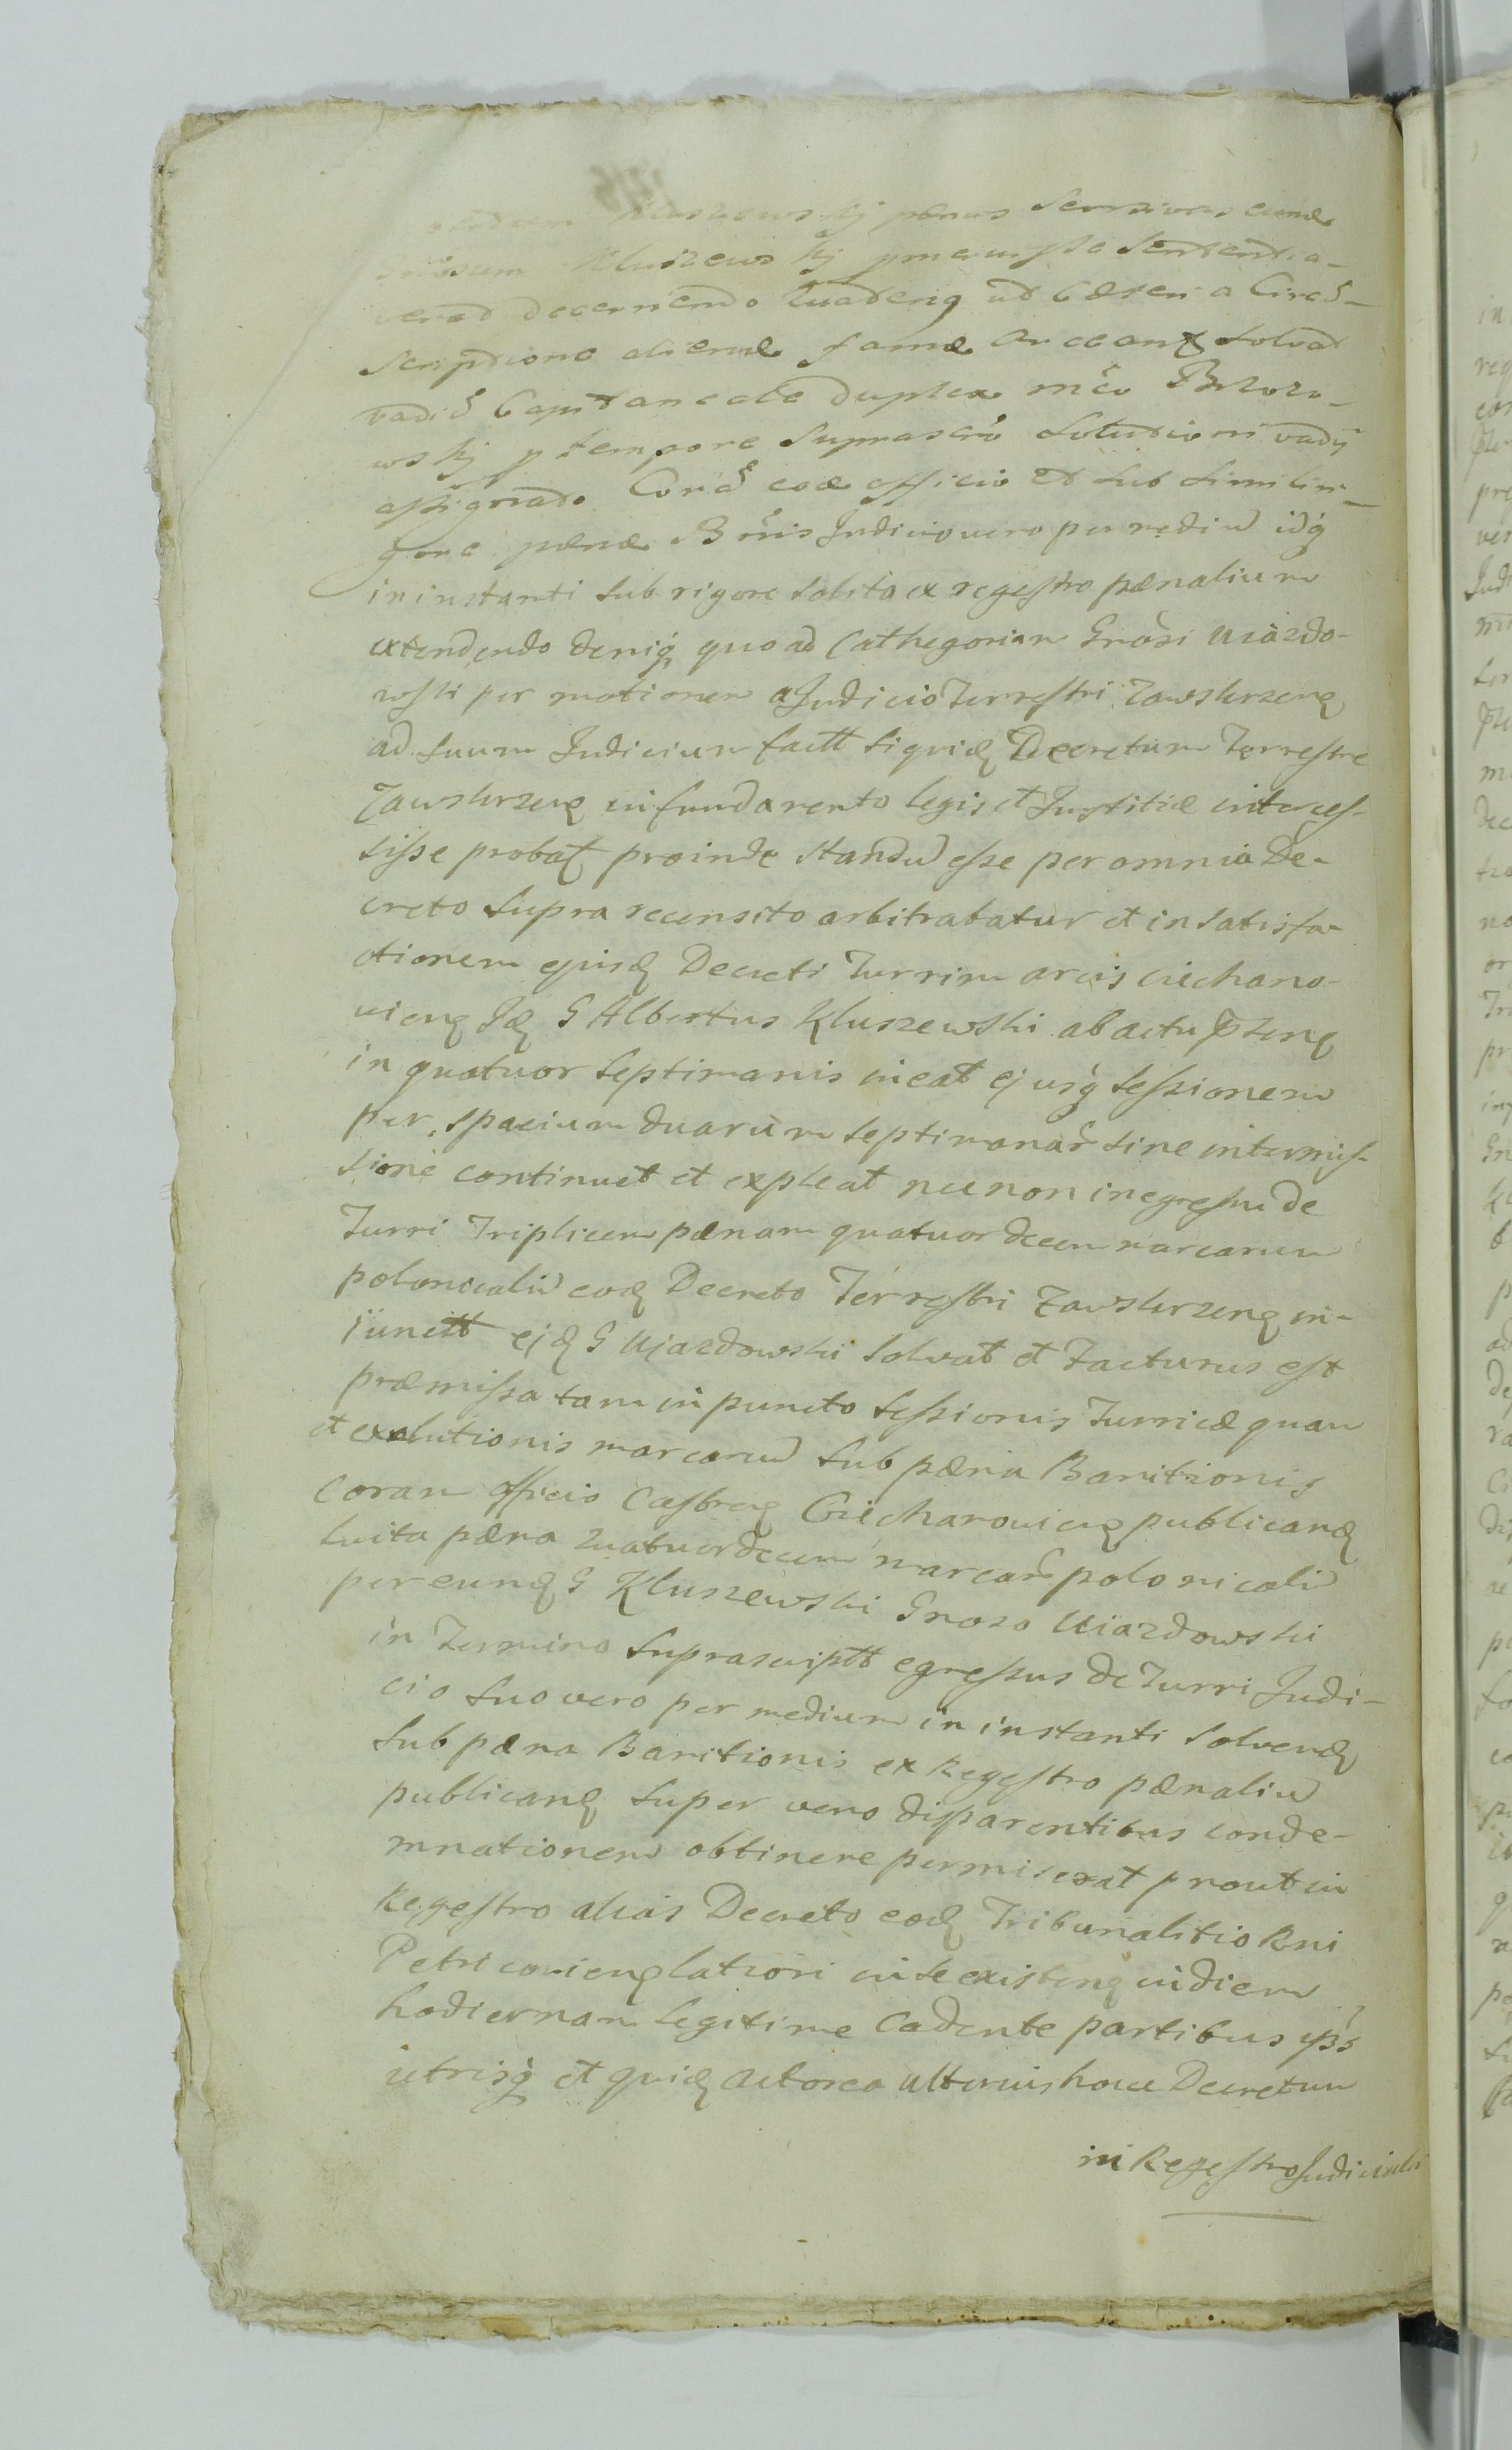 Kluszewskj pœnas eund
Kluszewskj præmissa sententia-
verat decernendo quateng ad a Circa
scriptione alienæ famæ arceant solvat
vadiũ Capitaneale duplex mco Brzozo-
wskj p tempore suprascro solutioni vadij
assignato Corã eod officio et sub simili ri-
gore pœnæ Bnis Judicio vero per mediũ idq
in instanti sub rigore solita ex regestro pœnalium
extendendo deniq quo ad Cathegoriam Gnosi Uiazdo-
wski per motionem a Judicio Terrestri Zawskrzenʒ
ad suum Judicium factt siquidʒ Decretum Terrestre
Zawskrzenʒ in fundamento legis et Justitiæ interces-
sisse probat proinde standũ esse per omnia De-
creto supra recensito arbitrabatur et in satisfa-
ctionem ejusdʒ Decreti Turrim arcis ciechano-
uienʒ Idʒ G Albertus Kluszewski ab actu pntenʒ
in quatuor septimanis ineat ejusq sessionem
per spacium duarum septimanar sine intermis-
sione continuet et expleat necnon in egressu de
Turri Triplicem pœnam quatuordecem marcarum
polonicaliũ eodʒ Decreto Terrestri Zawskrzenʒ in-
iunctt ejdʒ G Ujazdowski solvat et facturus est
præmissa tam in puncto sessionis Turricæ quam
et exolutionis marcarũ sub pœna Banitionis
coram officio Castrenʒ Ciechanouienʒ publicandʒ
luita pœna quatuordecem marcar polonicaliũ
per eundʒ G Kluszewski Gnoso Uiazdowski
in Termino suprascriptt egressus de Turri Judi-
cio suo vero per medium in instanti solvendʒ
sub pœna Banitionis ex Regestro pœnaliũ
publicandʒ super vero disparentibus conde-
mnationem obtinere permiserat prout in
Regestro alias Decreto eodʒ Tribunalitio Rni
Petricouienʒ latiori in se existenʒ in diem
hodiernam legitime Cadente partibus ipss
utrisq et quidʒ actorea ulterius hocce Decretum
in Regestro Judiciali